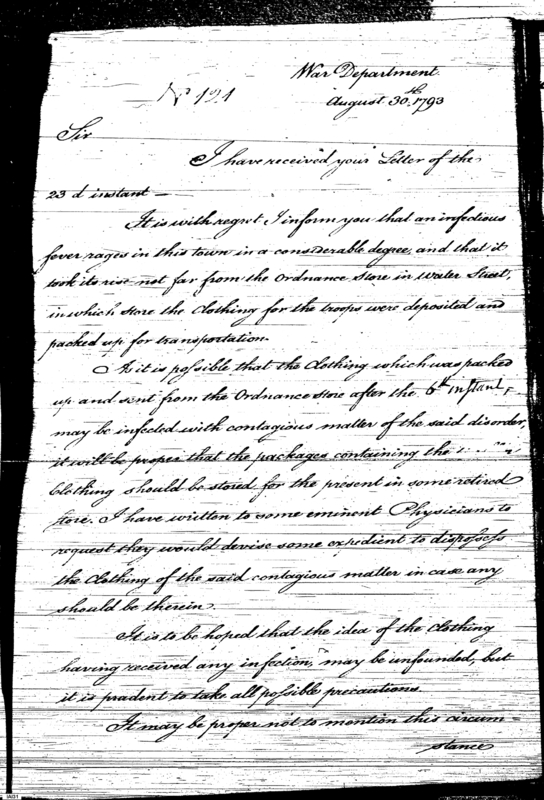 War Department
Nº 121
August 30th 1793
Sir
I have received your Letter of the
23 d instant—
It is with regret I inform you that an infectious
fever rages in this town in a considerable degree, and that it
took its rise not far from the Ordnance Store in Water Street,
in which Store the Clothing for the troops were deposited and
packed up for transportation.
As it is possible that the Clothing which was packed
up and sent from the Ordnance Store after the 6th instant,
may be infected with contagious matter of the said disorder,
it will be proper that the packages containing the
Clothing should be stored for the present in some retired
store. I have written to some eminent Physicians to
request they would devise some expedient to dispossess
the Clothing of the said contagious matter in case any
should be therein.
It is to be hoped that the idea of the Clothing
having received any infection, may be unfounded, but
it is prudent to take all possible precautions.
It may be proper not to mention this circum-
stance